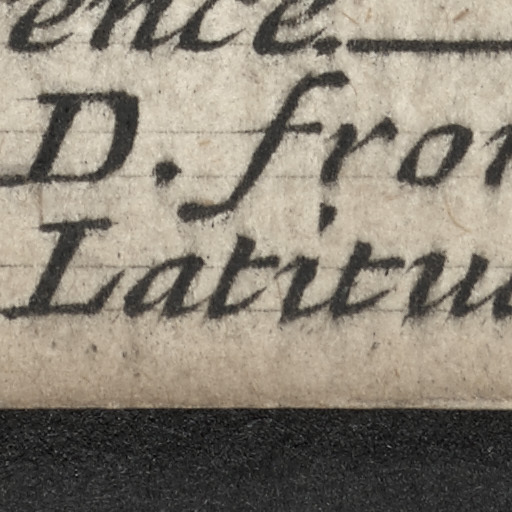 ence.
D. fro
Latitu